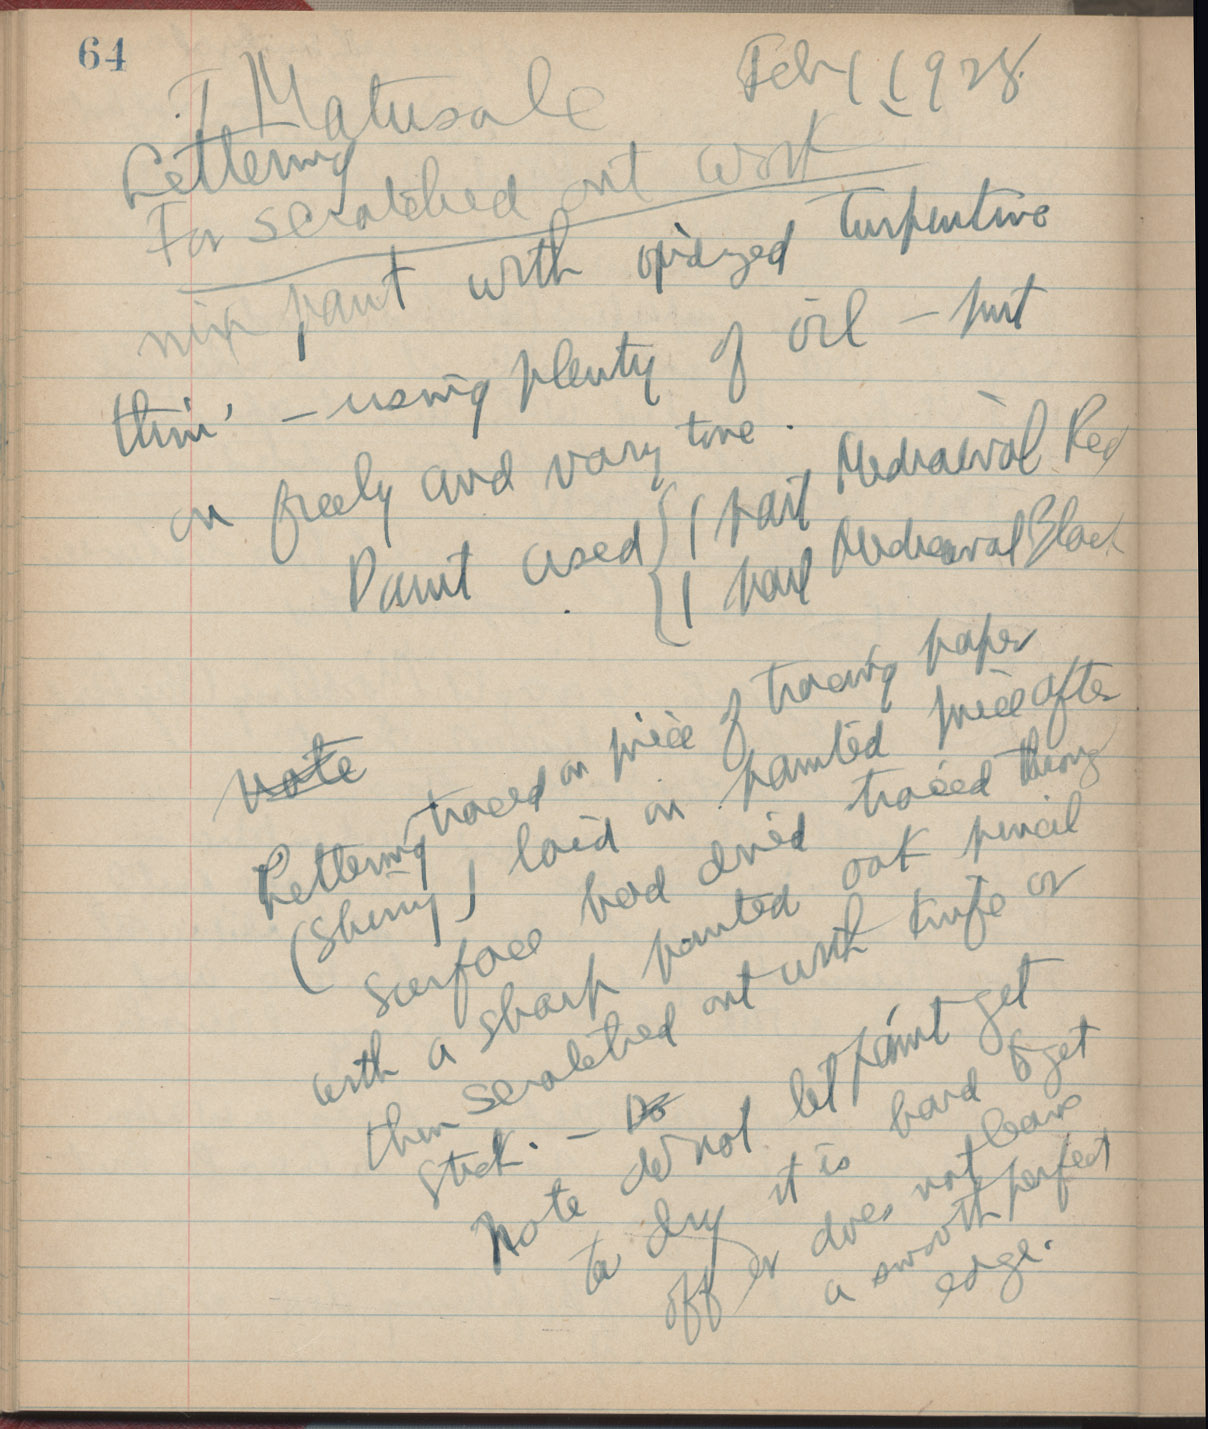 64
T Matusale Feby 1 1928
Lettering
For scratched out work
mix paint with oxidized turpentine
thin' – using plenty of oil – put
on freely and vary tone.
Paint used { 1 part Mediaeval Red
1 part Mediaeval Black
Note
Lettering traced on piece of tracing paper
(shiny) laid on painted piece after
surface had dried traced throug
with a sharp pointed oak pencil
then scratched out with knife or
stick. – Do
Note do not let paint get
to dry it is hard to get
off or does not leave
a smooth perfect
edge.